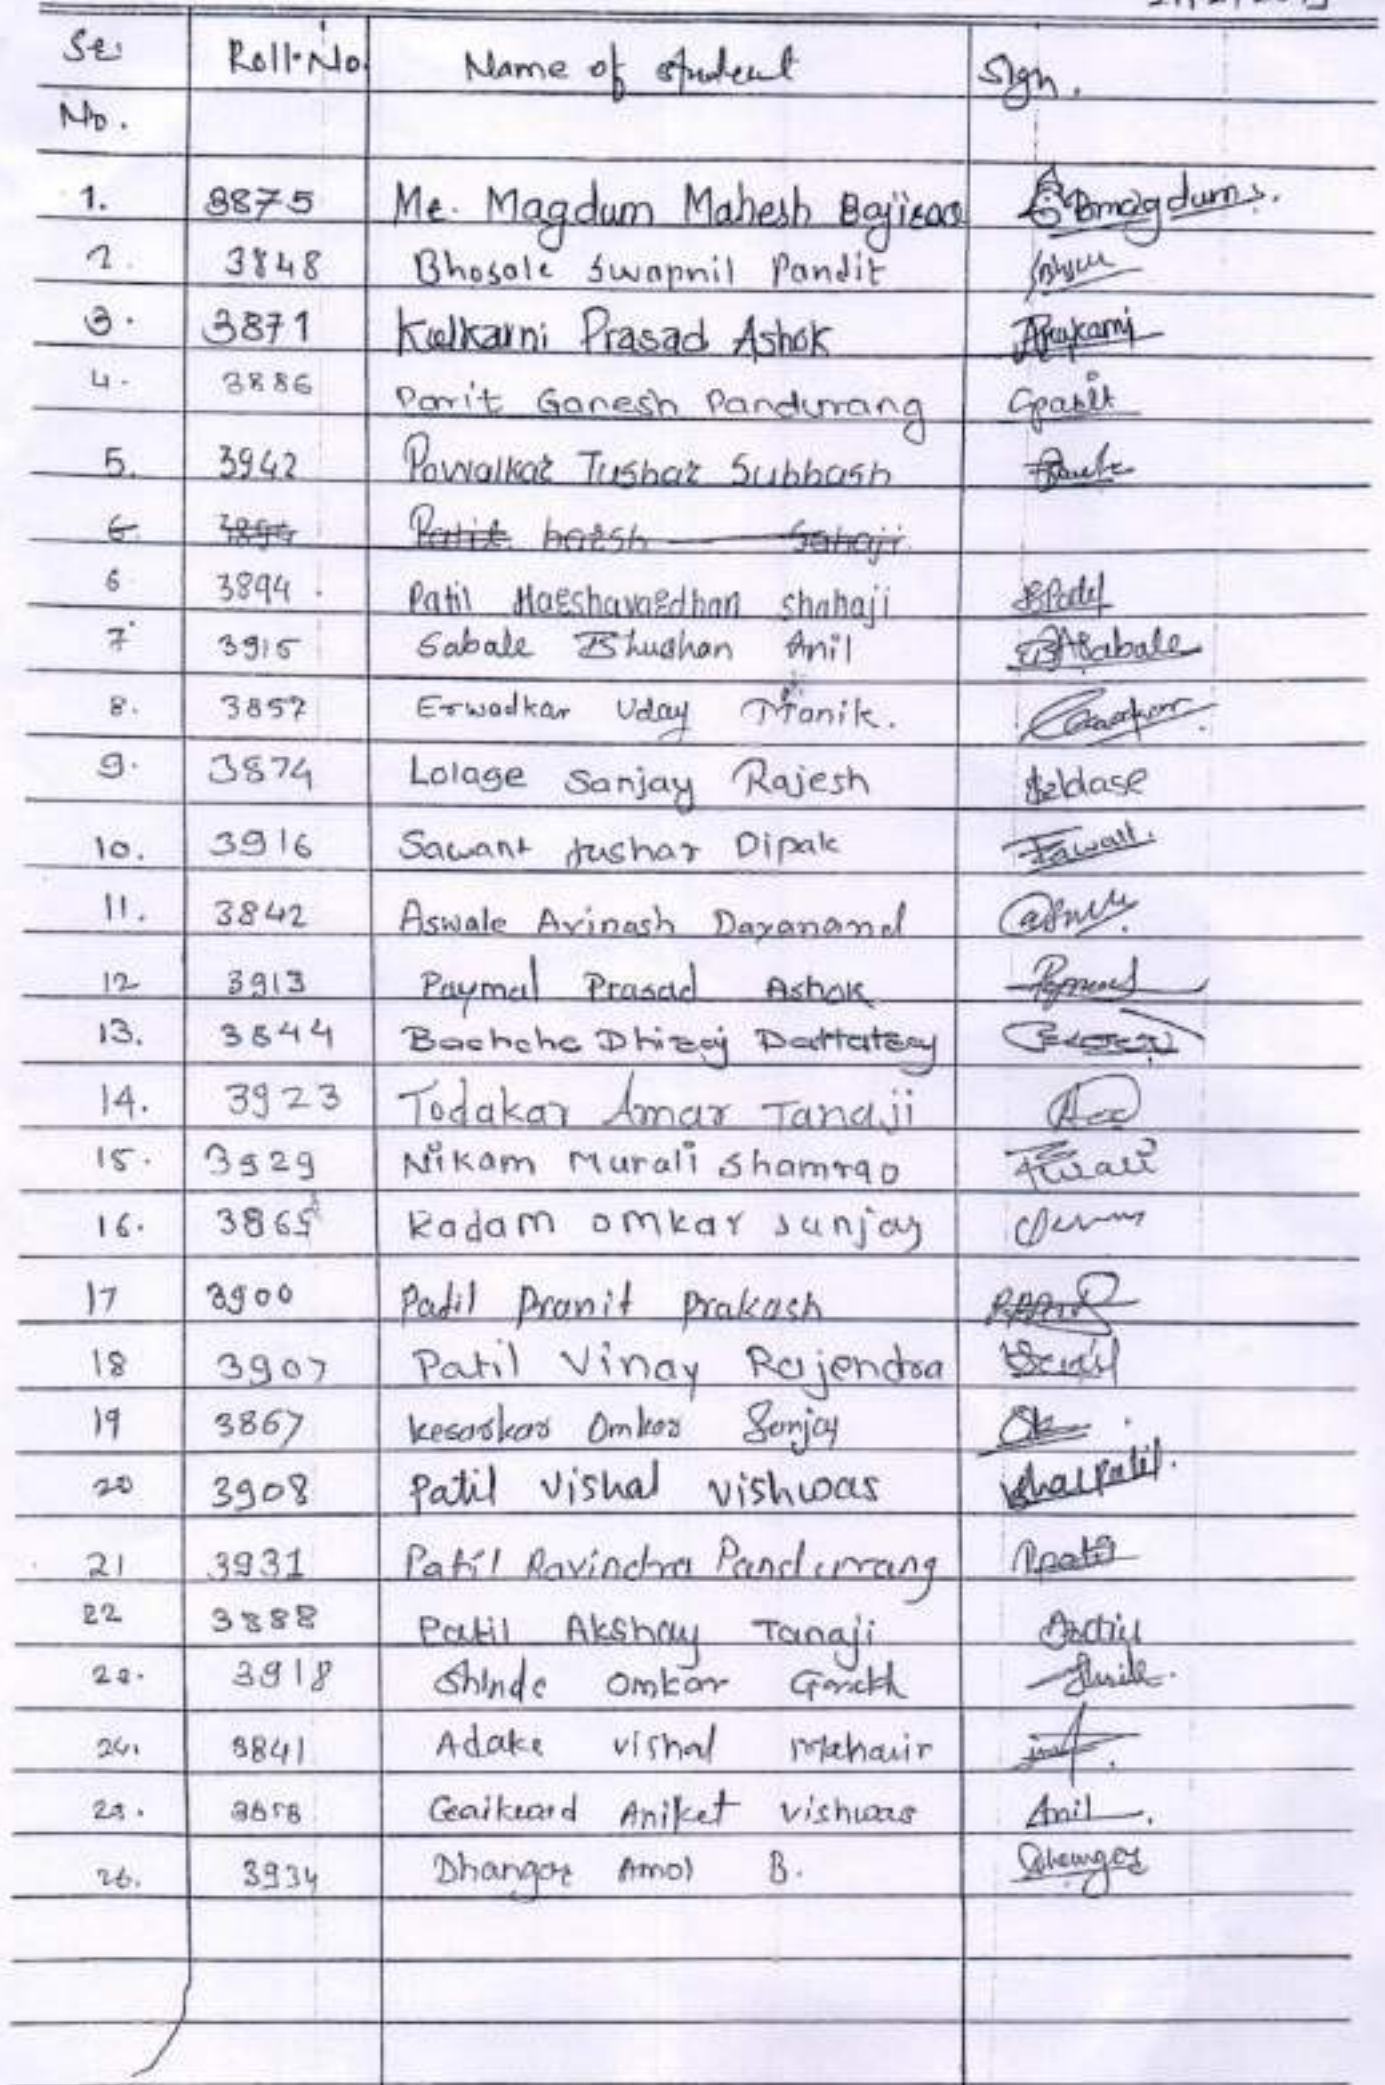 Sr. Roll.No. Name of student Sign.
No.
1. 3875 Mr. Magdum Mahesh Bajirao Bmagdum.
2. 3848 Bhosale Swapnil Pandit
3. 3871 Kulkarni Prasad Ashok
4. 3886 Parit Ganesh Pandurang Gparit
5. 3942 Powalkar Tushar Subhash
6 3894 Patil harsh Sahaji
6 3894. Patil Harshavardhan Shahaji
7 3915 Sabale Bhushan Anil BASabale
8. 3857 Erwadkar Uday Manik.
9. 3874 Lolage Sanjay Rajesh
10. 3916 Sawant tushar Dipak
11. 3842 Aswale Avinash Dayanand
12 3913 Paymal Prasad Ashok
13. 3844 Bachche Dhiraj Dattatray
14. 3923 Todakar Amar Tanaji
15. 3929 Nikam Murali Shamrao
16. 3865 Kadam omkar sanjay
17 3900 Patil Pranit Prakash
18 3907 Patil Vinay Rajendra
19 3867 Kesarkar Omkar Sanjay
20 3908 Patil Vishal Vishwas Vishalpatil.
21 3931 Patil Ravindra Pandurang
22 3888 Patil Akshay Tanaji
23. 3918 Shinde Omkar Gorakh
24. 3841 Adake vishal Mahavir
25. 3858 Gaikward Aniket vishwas Anil.
26. 3934 Dhangar Amol B. Dhangar